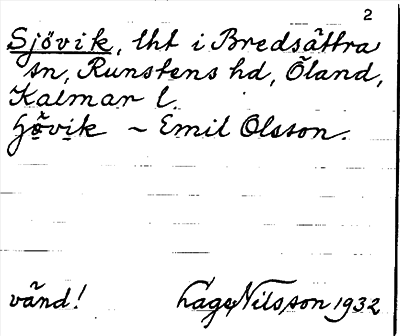 2
Sjövik, lht i Bredsättra
sn, Runstens hd, Öland,
Kalmar l.
~ Emil Olsson.
vänd! Nilsson 1932